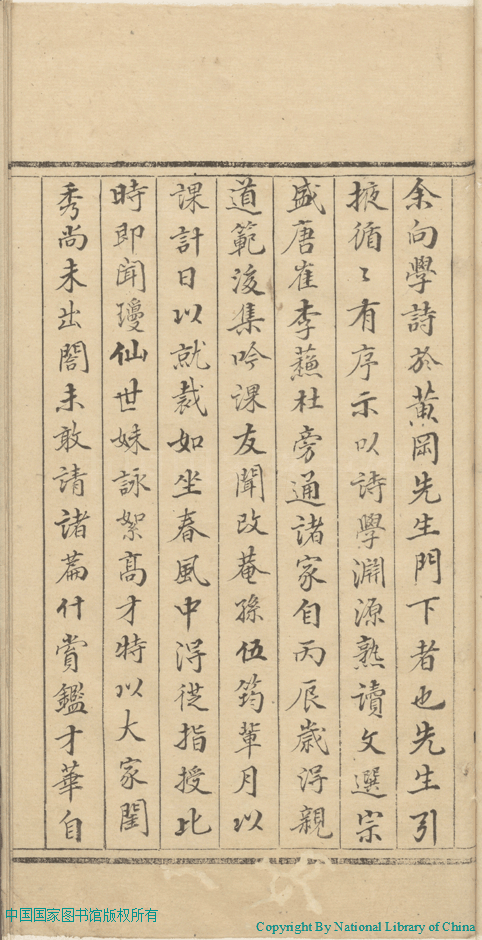 余向學詩於黃岡先生門下者也先生引
掖循〻有序示以詩學淵源熟讀文選宗
盛唐崔李蘓杜旁通諸家自丙辰歲淂親
道範後集吟課友聞改菴孫伍筠輩月以
課計日以就裁如坐春風中淂從指授比
時即聞瓊仙世妹詠絮高才特以大家閨
秀尚未出閤未敢請諸篇什賞鑑才華自
中国国家图书馆版权所有
Copyright By National Library of China